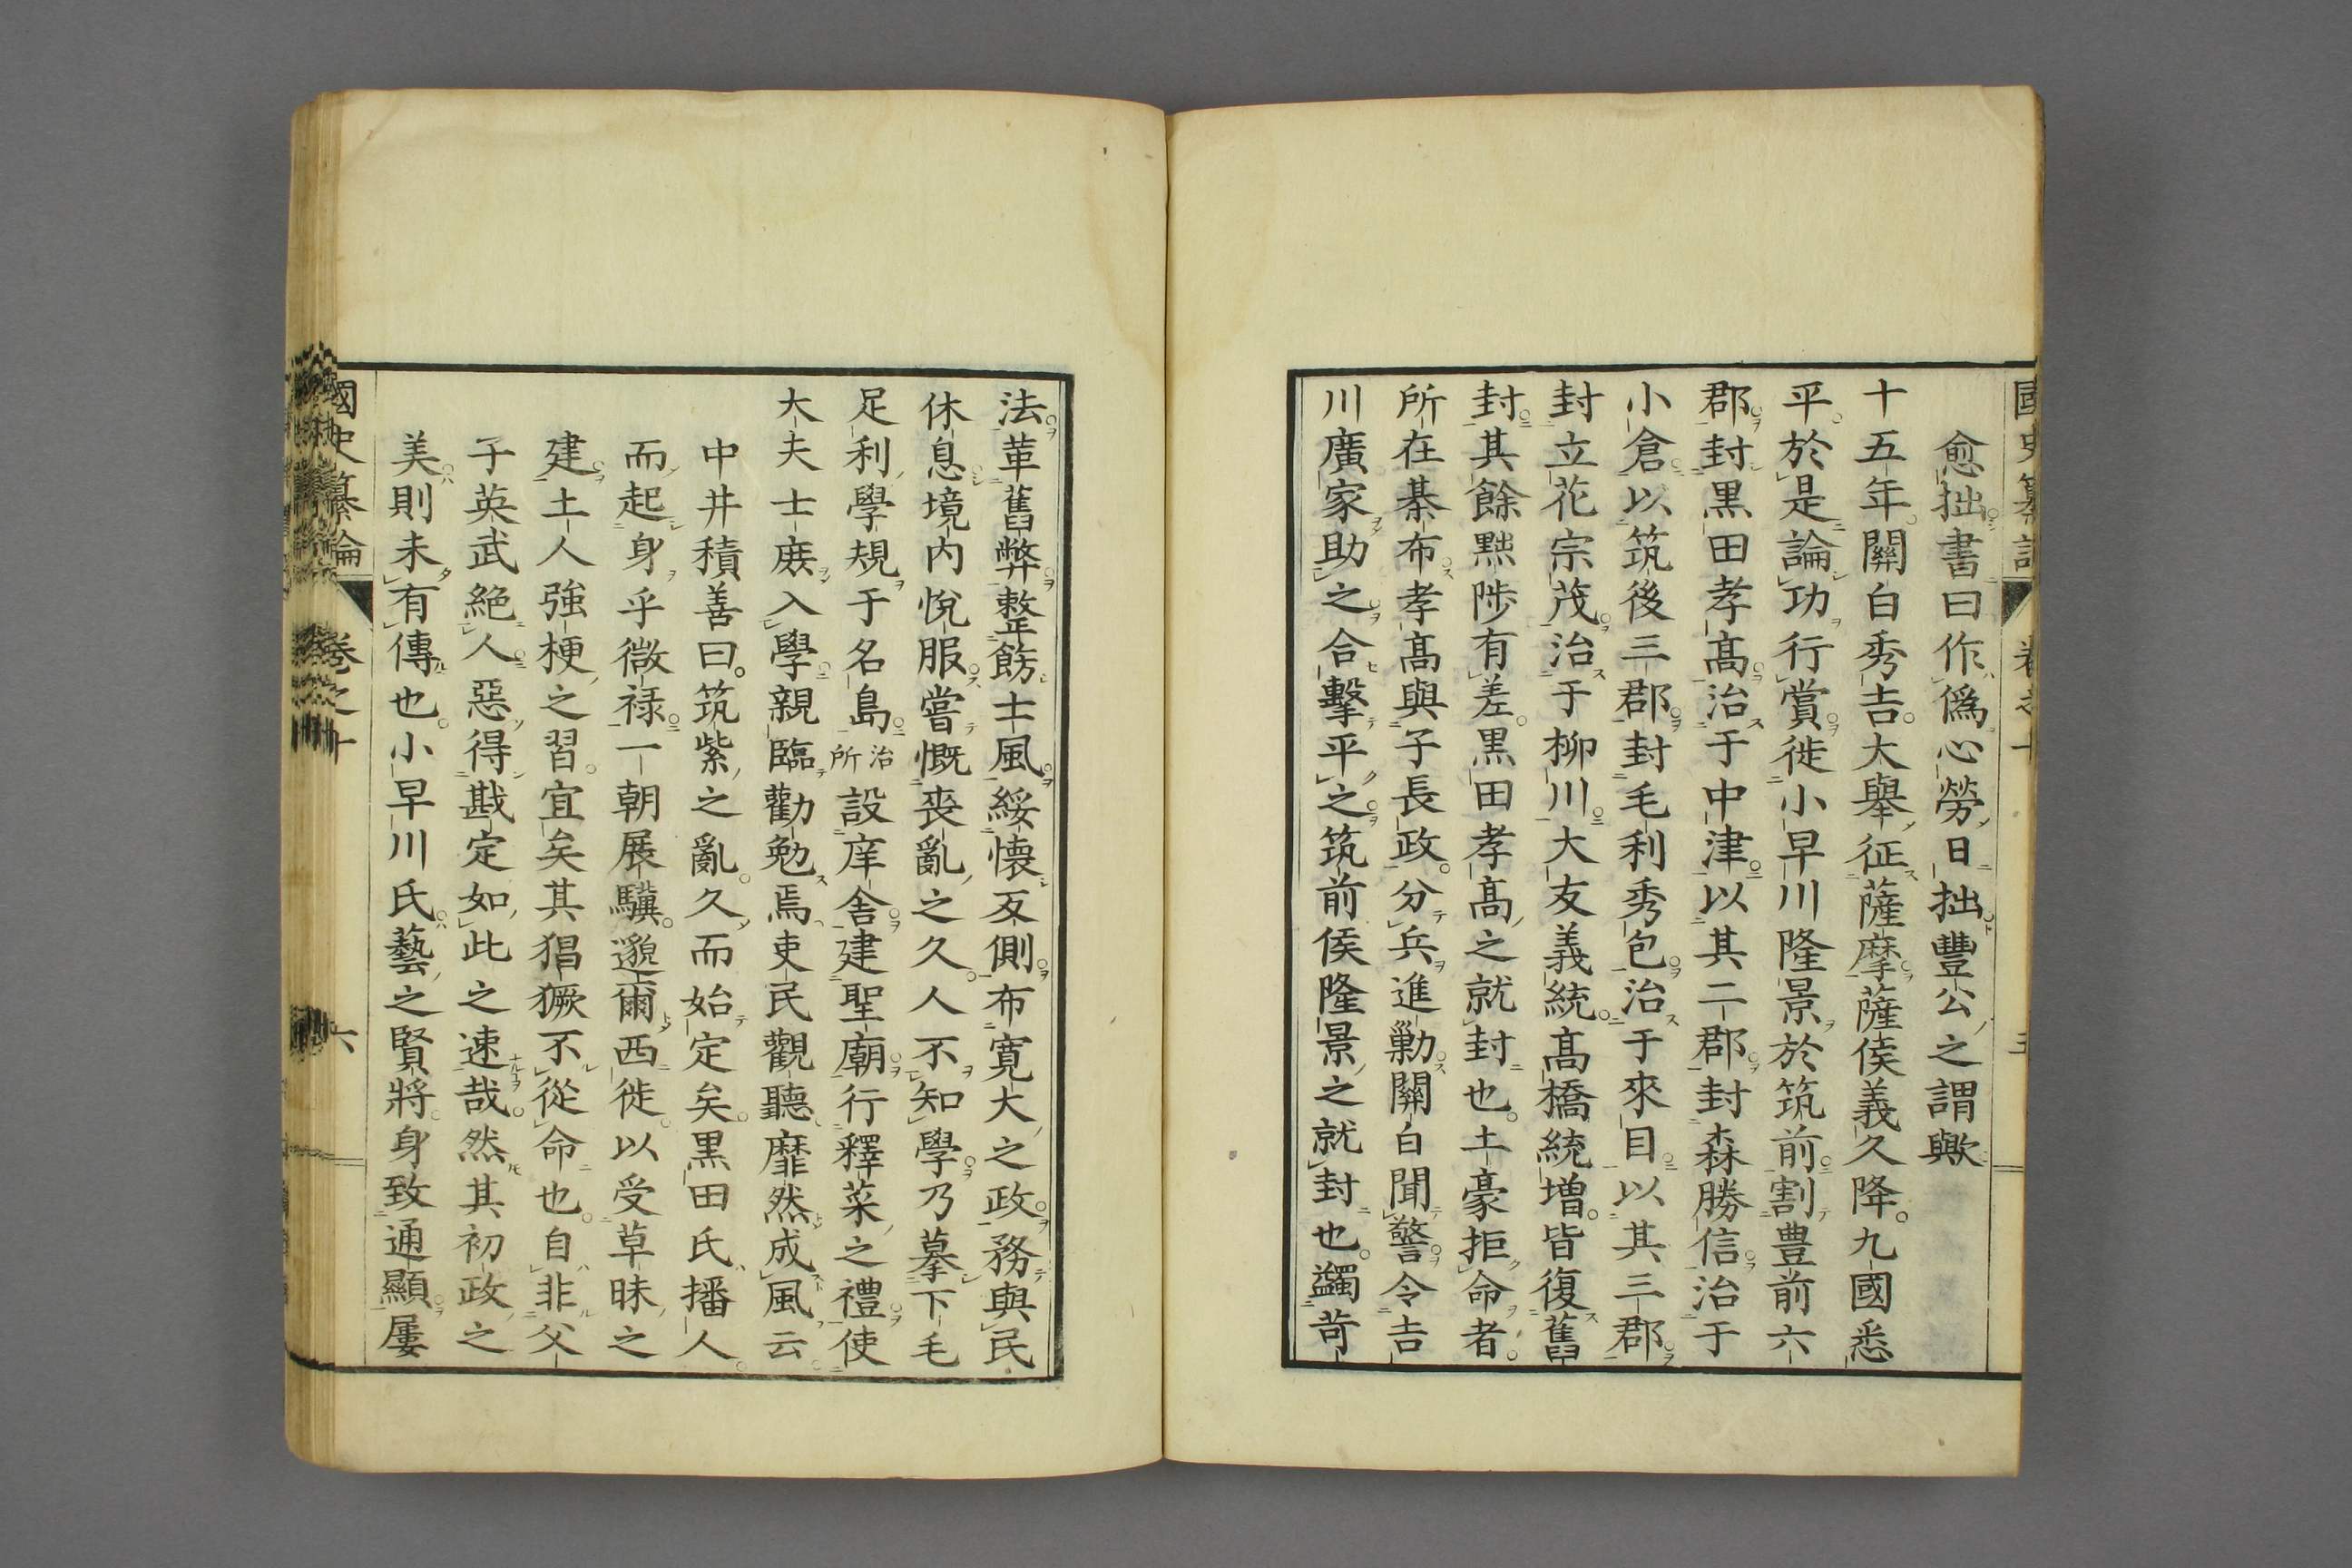 國史纂論 卷之十 五
愈拙書曰作僞心勞日拙豐公之謂歟
十五年關白秀吉大舉征薩摩薩侯義久降九國悉
平於是論功行賞徙小早川隆景於筑前割豊前六
郡封黑田孝高治于中津以其二郡封森勝信治于
小倉以筑後三郡封毛利秀包治于來目以其三郡
封立花宗茂治于柳川大友義統高橋統増皆復舊
封其餘黜陟有差黑田孝高之就封也土豪拒命者
所在棊布孝高與子長政分兵進勦關白聞警令吉
川廣家助之合擊平之筑前侯隆景之就封也蠲苛
法革舊弊整飭士風綏懷反側布寛大之政務與民
休息境内悅服嘗慨喪亂之久人不知學乃摹下毛
足利學規于名島治所設庠舍建聖廟行釋菜之禮使
大夫士庶入學親臨勸勉焉吏民觀聽靡然成風云
中井積善曰筑紫之亂久而始定矣黑田氏播人
而起身乎微禄一朝展驥邈爾西徙以受草昧之
建土人強梗之習宜矣其猖獗不從命也自非父
子英武絶人惡得戡定如此之速哉然其初政之
美則未有傳也小早川氏藝之賢將身致通顯屢
國史纂論 卷之十 六